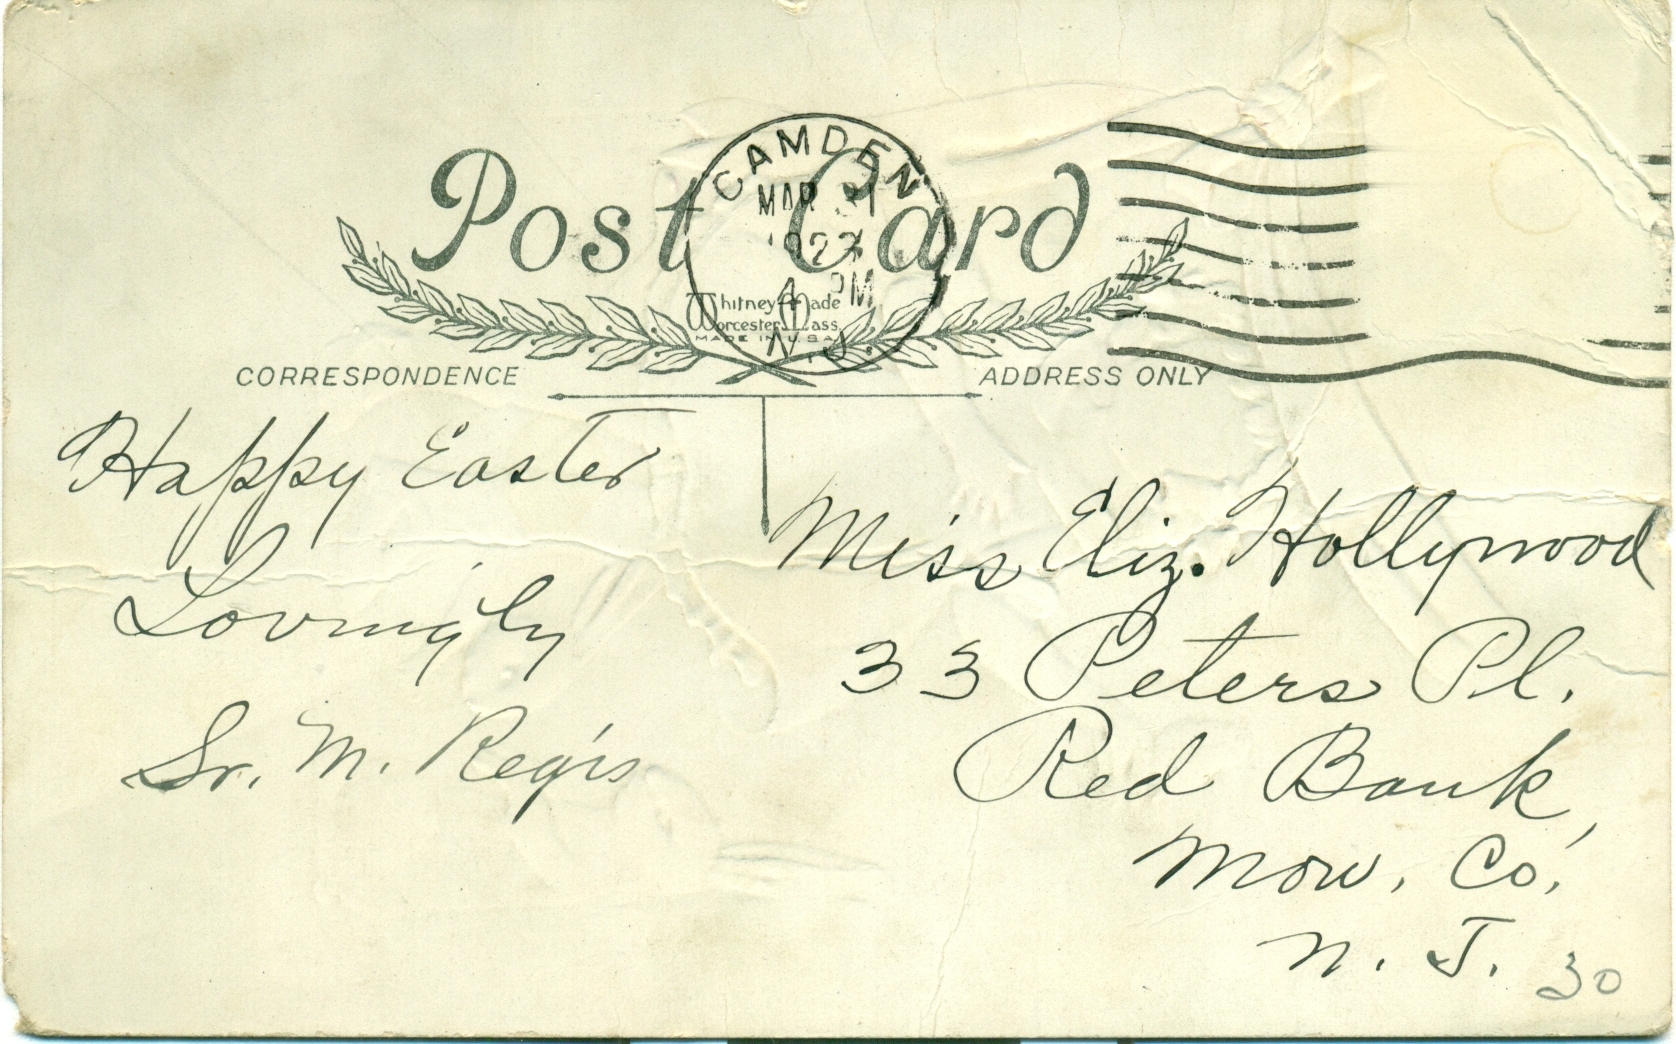 Post Card
CAMDEN
MAR 31
PM
N. J.
Whitney Made
Worcester Mass.
MADE IN U.S.A.
CORRESPONDENCE
ADDRESS ONLY
Happy Easter
Lovingly
Sr. M. Regis
Miss Eliz. Hollywood
33 Peters Pl.
Red Bank,
Mon. Co.
N. J.
30